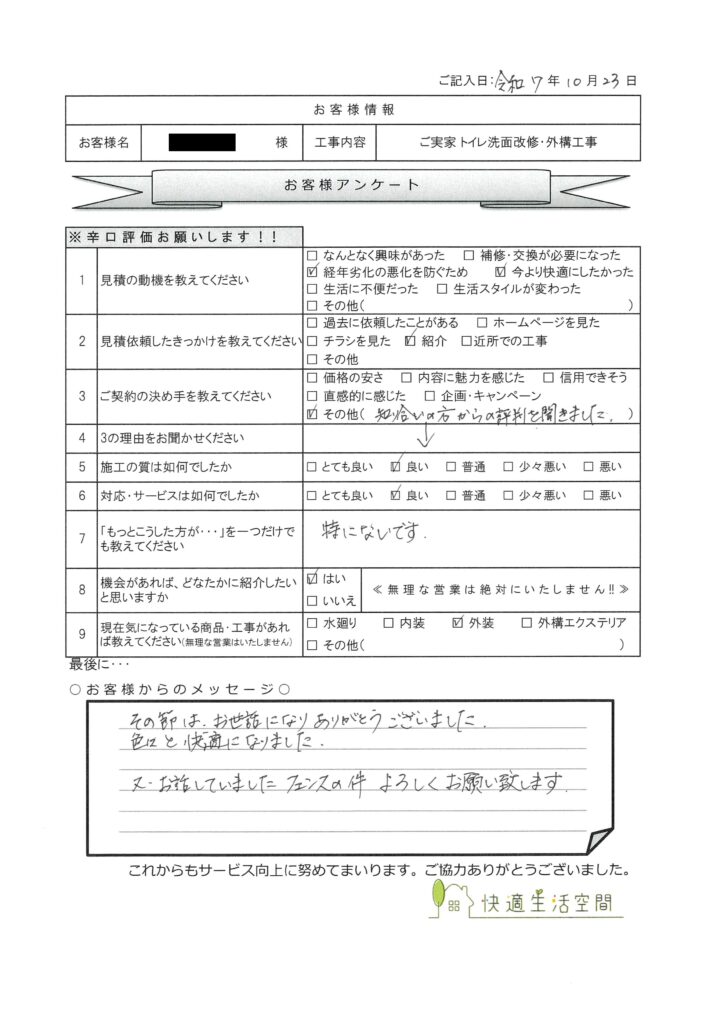 ご記入日:令和7年10月23日
お客様情報
お客様名 様 工事内容 ご実家トイレ洗面改修・外構工事
お客様アンケート
※辛口評価お願いします!!
1 見積の動機を教えてください
□ なんとなく興味があった □ 補修・交換が必要になった
☑ 経年劣化の悪化を防ぐため ☑ 今より快適にしたかった
□ 生活に不便だった □ 生活スタイルが変わった
□ その他( )
2 見積依頼したきっかけを教えてください
□ 過去に依頼したことがある □ ホームページを見た
□ チラシを見た ☑ 紹介 □近所での工事
□ その他
3 ご契約の決め手を教えてください
□ 価格の安さ □ 内容に魅力を感じた □ 信用できそう
□ 直感的に感じた □ 企画・キャンペーン
☑ その他( 知り合いの方からの評判を聞きました. )
4 3の理由をお聞かせください ↓
5 施工の質は如何でしたか □ とても良い ☑ 良い □ 普通 □ 少々悪い □ 悪い
6 対応・サービスは如何でしたか □ とても良い ☑ 良い □ 普通 □ 少々悪い □ 悪い
7 「もっとこうした方が・・・」を一つだけで
も教えてください
特にないです.
8 機会があれば、どなたかに紹介したい
と思いますか
☑ はい
□ いいえ
≪無理な営業は絶対にいたしません!!≫
9 現在気になっている商品・工事があれ
ば教えてください(無理な営業はいたしません)
□ 水廻り □ 内装 ☑ 外装 □ 外構エクステリア
□ その他( )
最後に・・・
○お客様からのメッセージ○
その節は、お世話になりありがとうございました.
色々と快適になりました.
又、お話していましたフェンスの件 よろしくお願い致します.
これからもサービス向上に努めてまいります。ご協力ありがとうございました。
快適生活空間